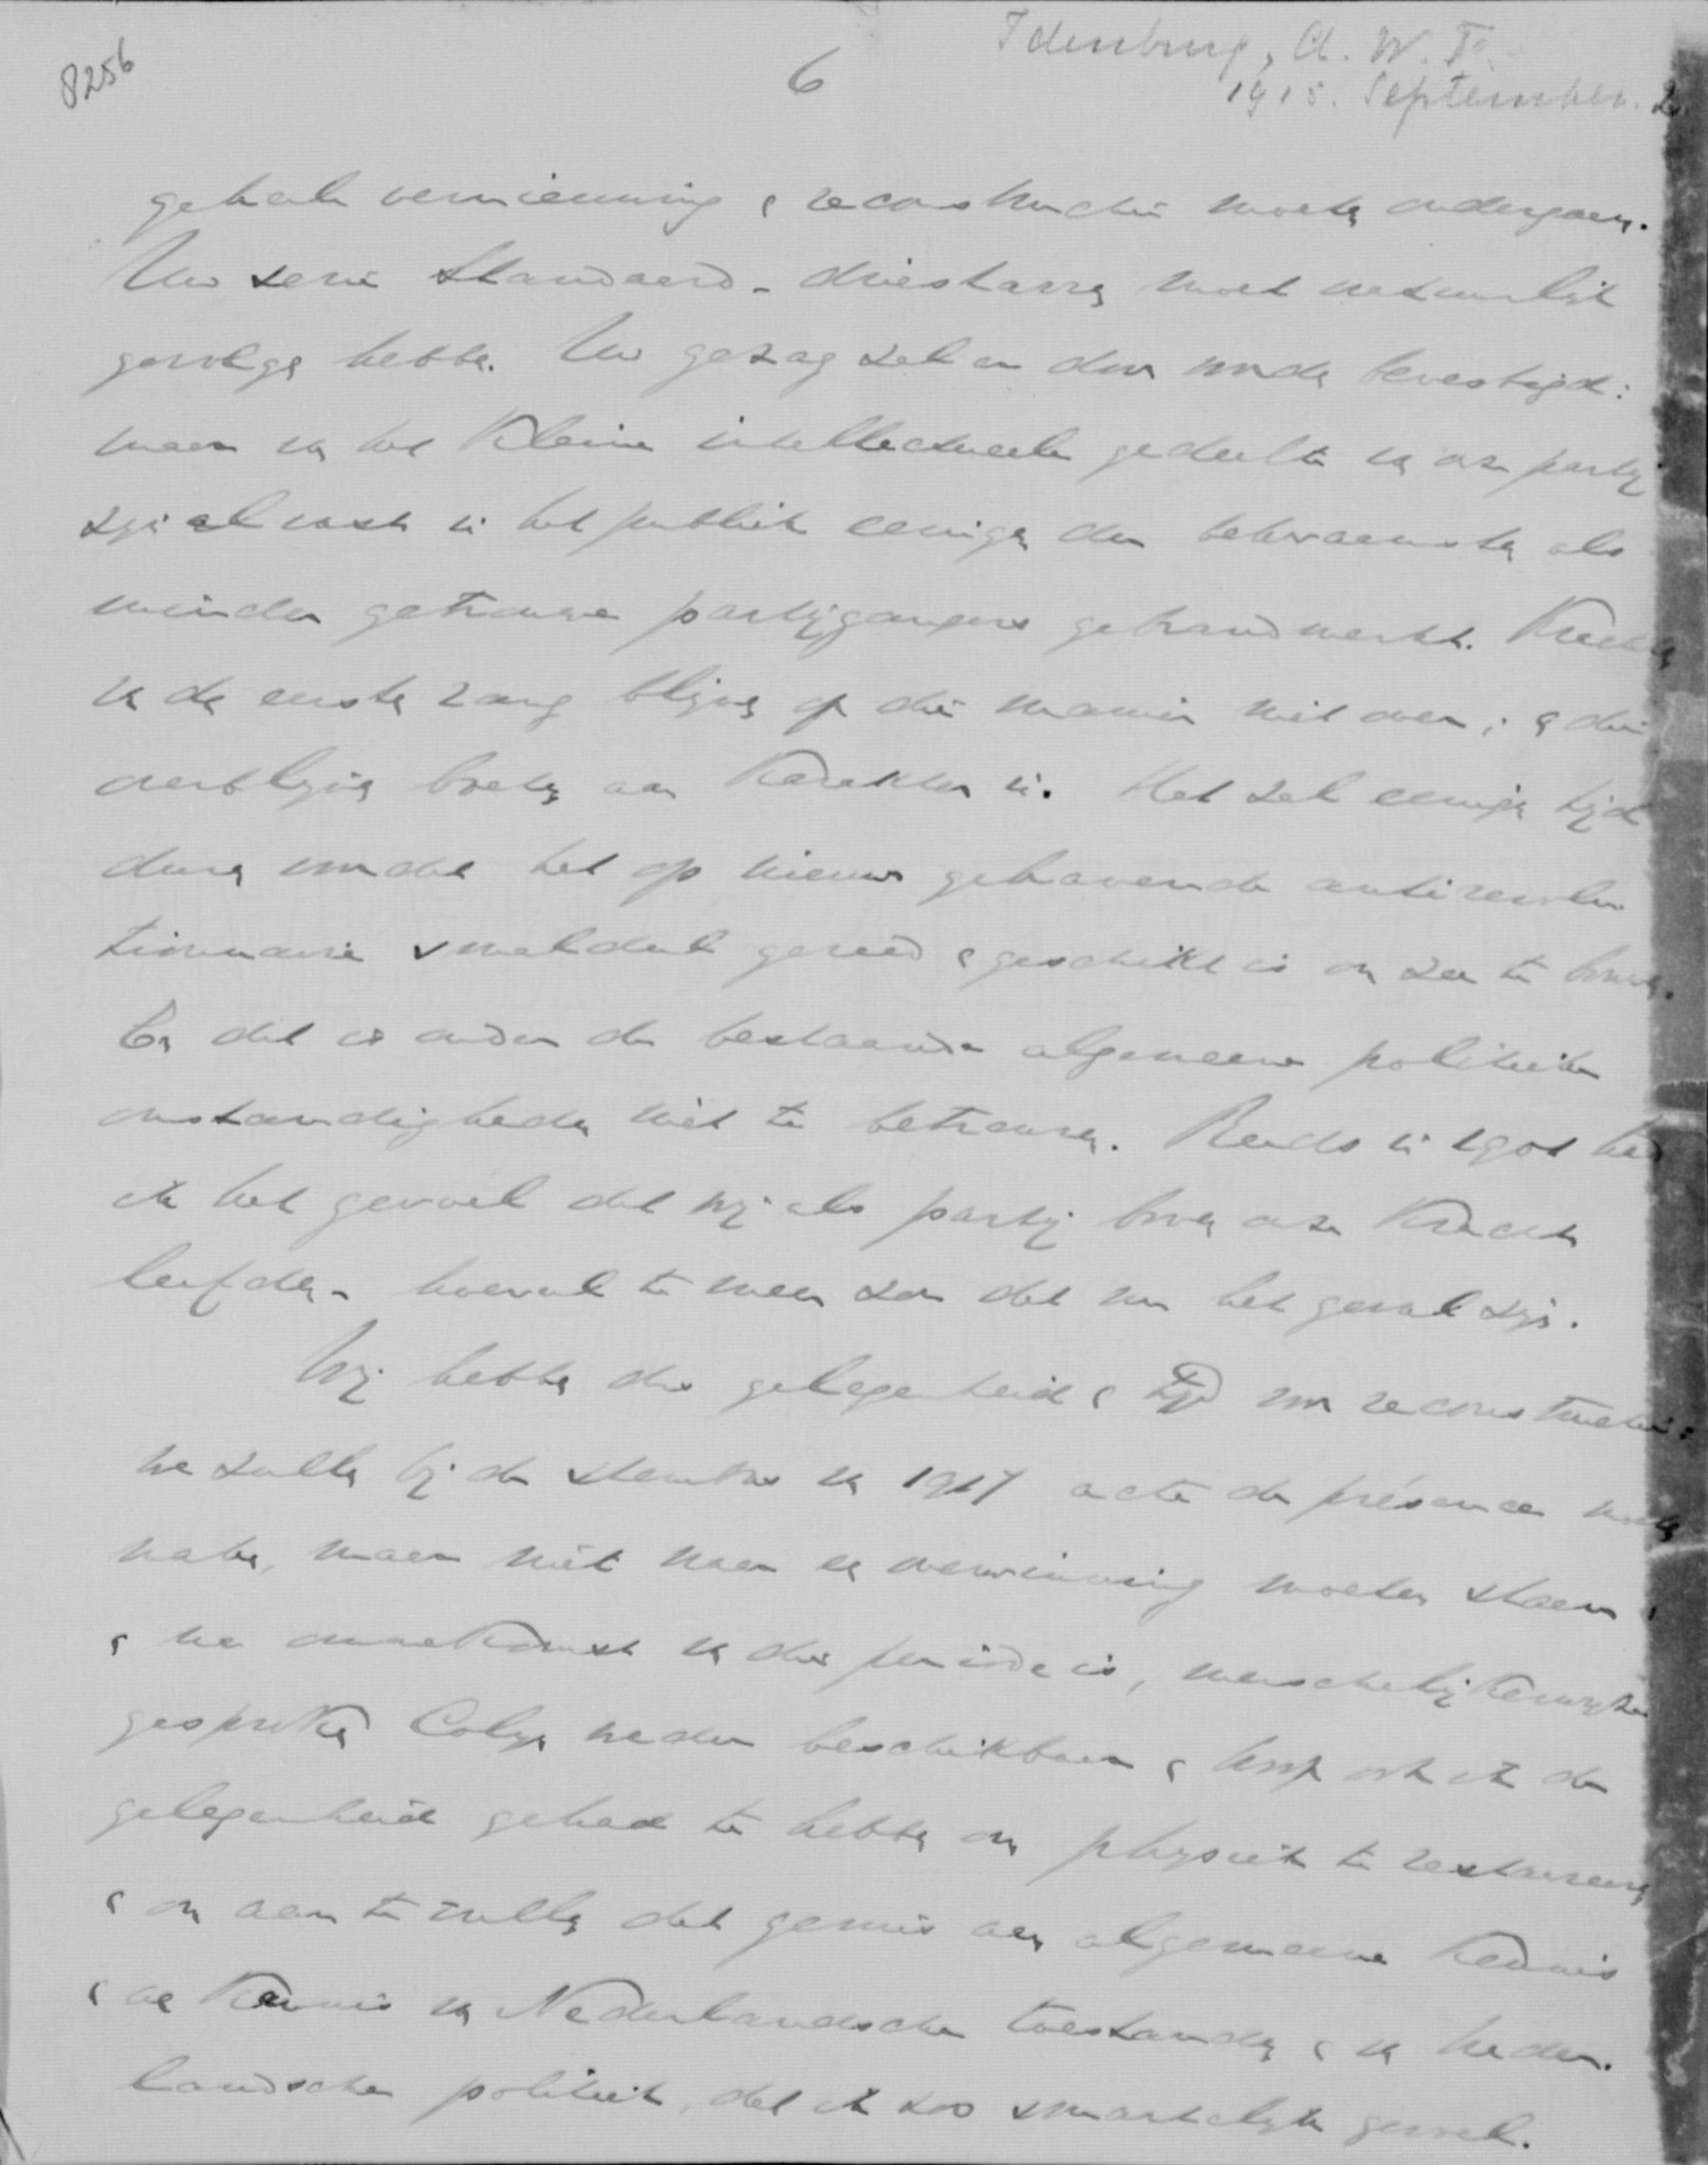 8256
6
Idenburg, A. W. F.
1915. September. 2
geheele vernieuwing & reconstructie moeten ondergaan.
Uw serie Standaard-driestarren moet natuurlijk
gevolgen hebben. Uw gezag zal er door worden bevestigd:
maar van het kleine intellectueele gedeelte van onze partij
zijn alvast in het publiek eenigen der bekwaamsten als
minder getrouwe partijgangers gebrandmerkt. Krachten
van den eersten rang blijven op die manier niet over; & die
overblijven boeten aan karakter in. Het zal eenigen tijd
duren voordat het op nieuw gehavende antirevolu
tionnaire smaldeel gereed & geschikt is om zee te bouwen.
En dat is onder de bestaande algemeene politieke
omstandigheden niet te betreuren. Reeds in 1901 had
ik het gevoel dat wij als partij boven onze kracht
leefden - hoeveel te meer zou dat nu het geval zijn.
Wij hebben dus gelegenheid & tijd voor reconstructie:
we zullen bij de stembus van 1917 acte de présence moeten
maken, maar niet naar een overwinning moeten staan;
& na ommekomst van die periode is, menschelijkerwijze
gesproken Colijn weder beschikbaar & hoop ook ik de
gelegenheid gehad te hebben om physiek te restaureeren
& om aan te vullen dat gemis aan algemeene kennis
& aan kennis van Nederlandsche toestanden & van Neder-
landsche politiek, dat ik zoo smartelijk gevoel.